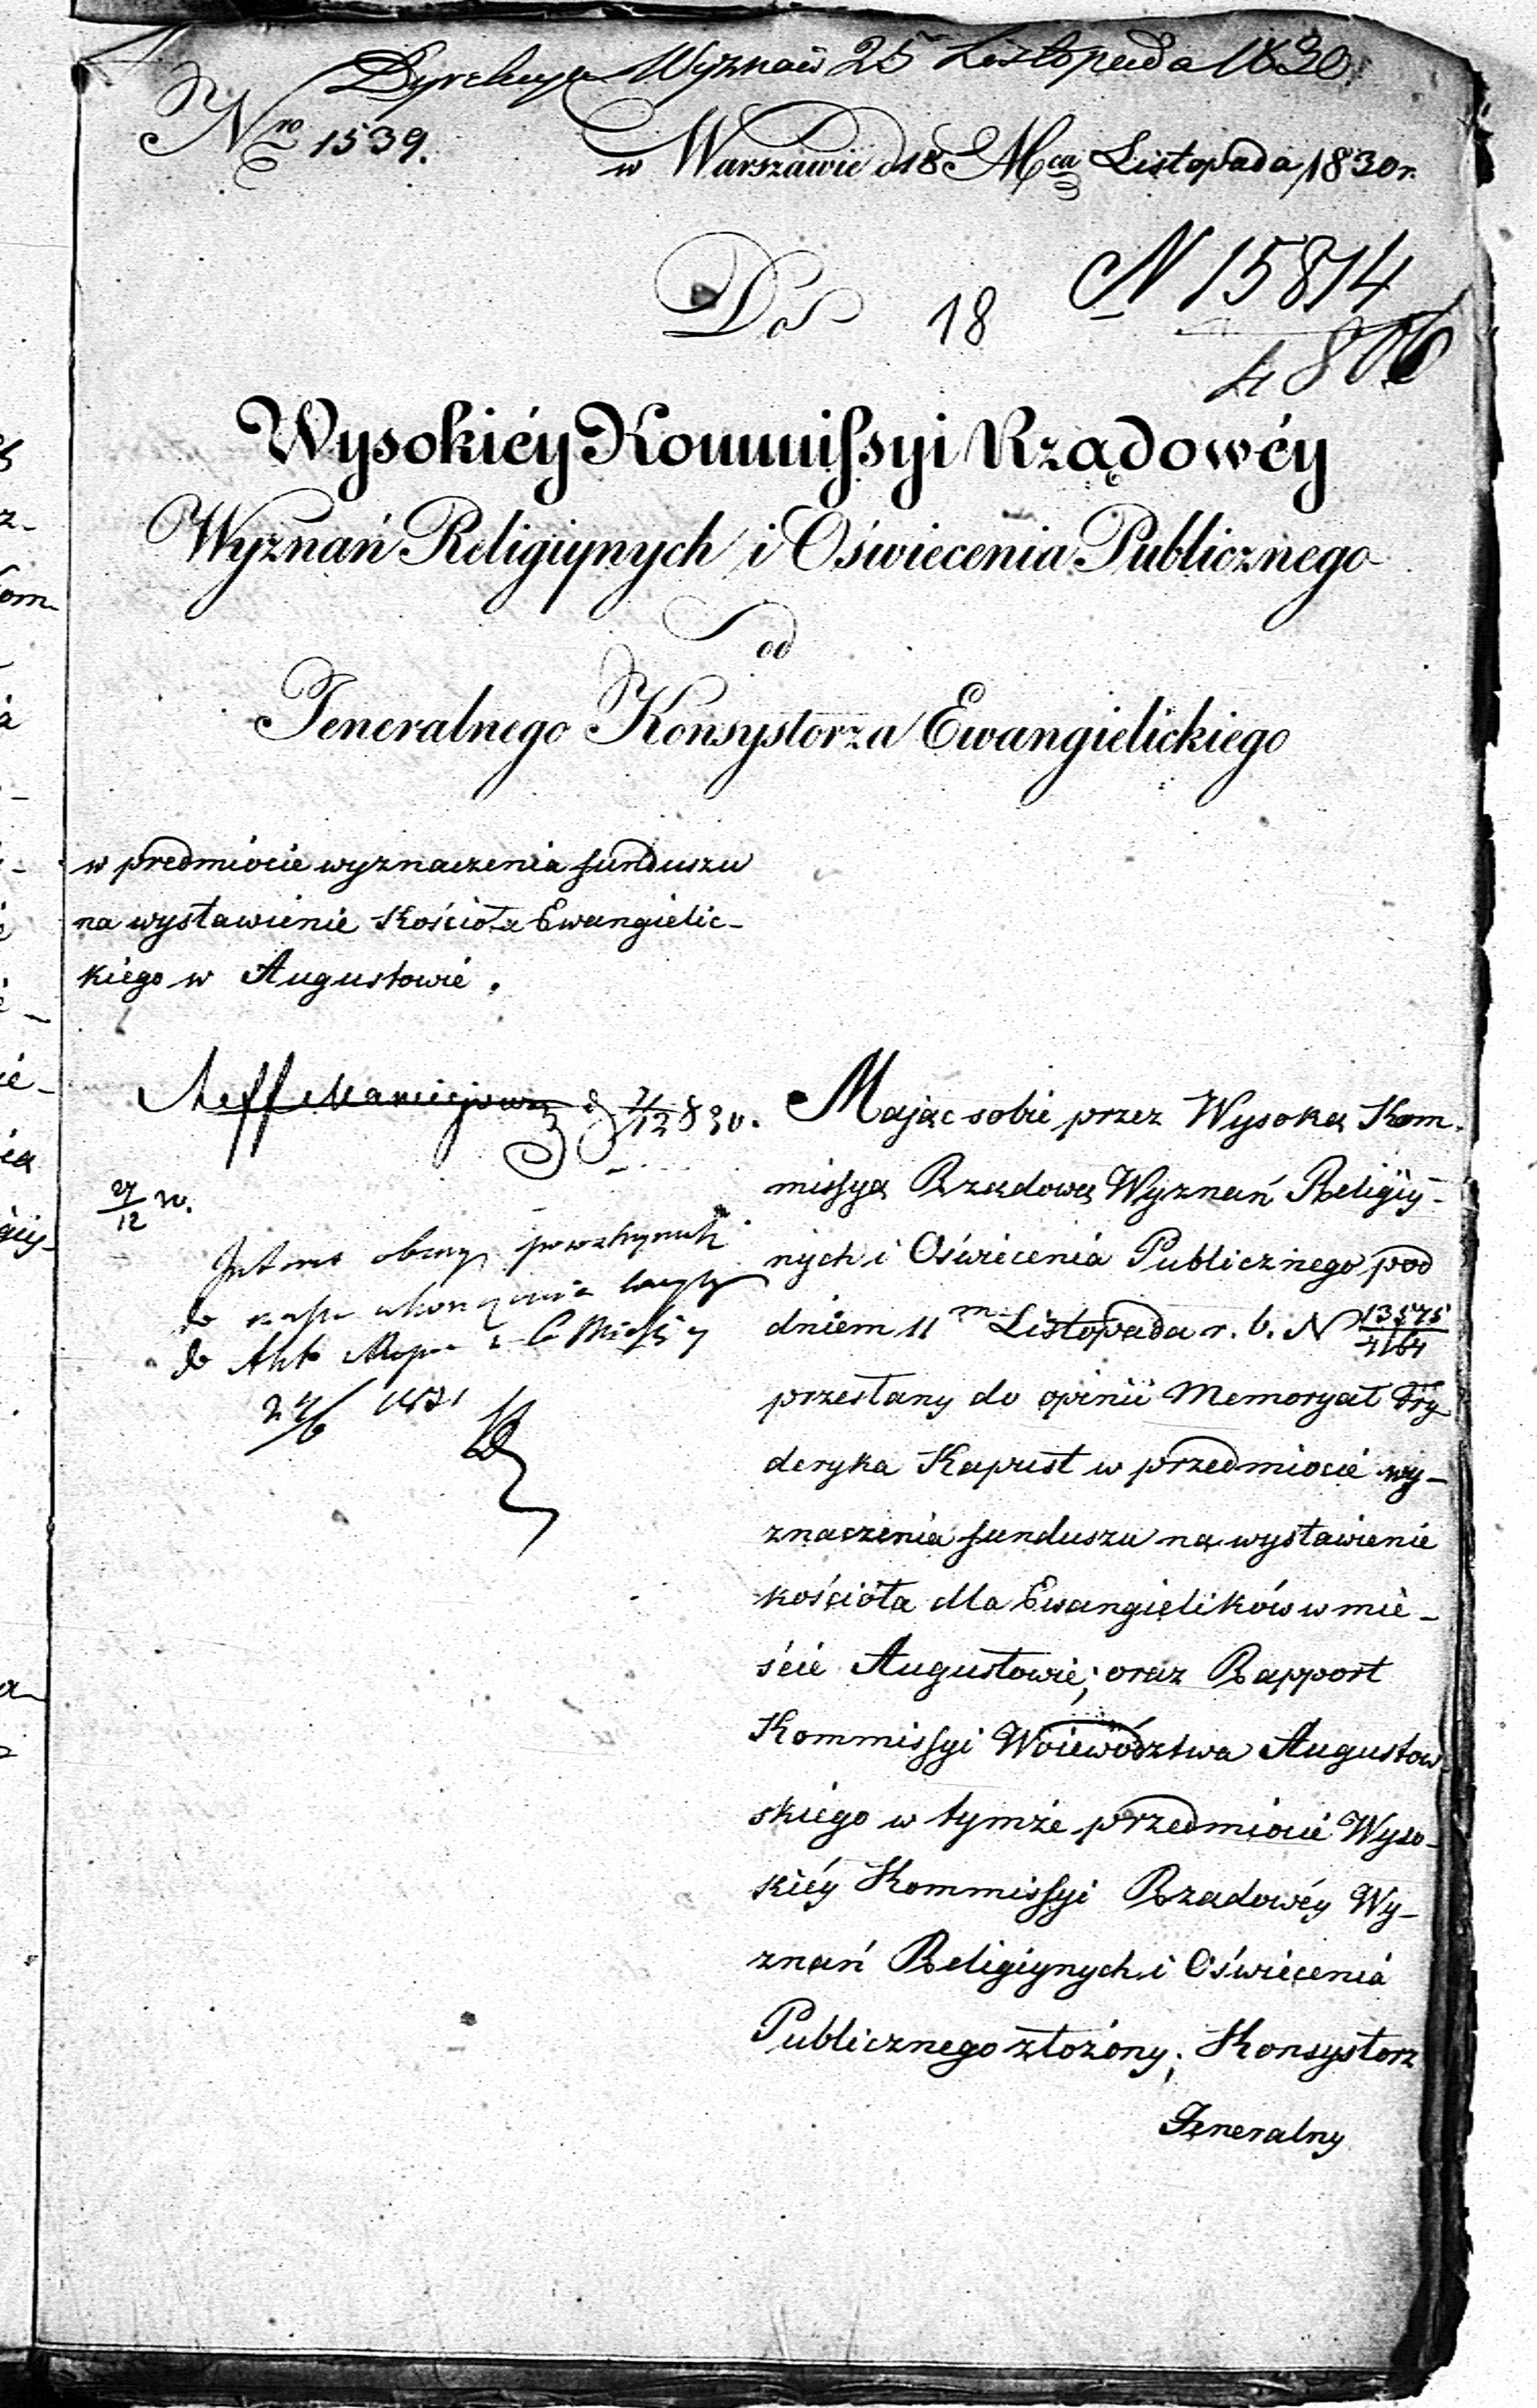 Dyrekcya Wyznań 25 Listopada 1830.
Nro 1539. w Warszawie d 18 Mca Listopada 1830 r.
N 15814
Do 18
4806
Wysokiéy Kommissyi Rządowéy
Wyznań Religiynych i Oświecenia Publicznego
od
Jeneralnego Konsystorza Ewangielickiego
w predmiocie wyznaczenia funduszu
na wystawienie Kościoła Ewangielic-
kiego w Augustowie.
830.
12
do
do Akt
1831
Maiąc sobie przez Wysoką Kom-
missyą Rządową Wyznań Religiy-
nych i Oświecenia Publicznego pod
dniem 11 m Listopada r. b. N 13575/4164
przesłany do opinii Memoryał Fry
deryka Kapust w przedmiocie wy-
znaczenia funduszu na wystawienie
kościoła dla Ewangielików w mie-
ście Augustowie; oraz Rapport
Kommissyi Woiewództwa Augustow-
skiego w tymże przedmiocie Wyso-
kiéy Kommissyi Rządowéy Wy-
znań Religiynych i Oświecenia
Publicznego złożony; Konsystorz
Jeneralny